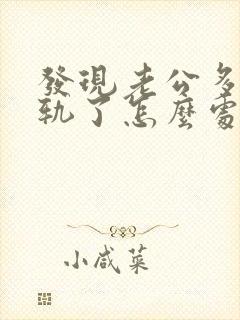 發現老公多
軌了怎麼處
小咸菜